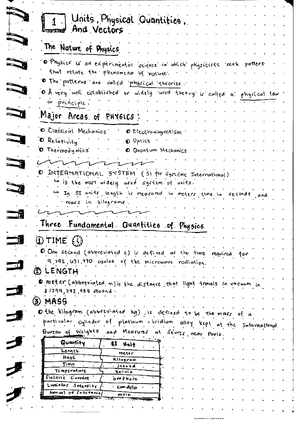 1 Units, Physical Quantities,
And Vectors
The Nature of Physics
Physics is an experimental science in which physicists seek pattern
that relate the phenomena of nature.
The patterns are called physical theories.
A very well established or widely used theory is called a physical law
or principle.
Major Areas of PHYSICS:
Classical Mechanics
Electromagnetism
Relativity
Optics
Thermodynamics
Quantum Mechanics
INTERNATIONAL SYSTEM (SI for Système International)
is the most widely used system of units.
In SI units, length is measured in meters, time in seconds, and
mass in kilograms.
Three Fundamental Quantities of Physics
1 TIME
One second (abbreviated s) is defined as the time required for
9,192,631,770 cycles of the microwave radiation.
2 LENGTH
meter (abbreviated m) is the distance that light travels in vacuum in
1/299,792,458 second.
3 MASS
the kilogram (abbreviated kg), is defined to be the mass of a
particular cylinder of platinum-iridium alloy kept at the International
Bureau of Weights and Measures at Sèvres, near Paris.
Quantity SI Unit
Length meter
Mass kilogram
Time second
Temperature kelvin
Electric Current ampere
Luminous Intensity candela
Amount of Substance mole